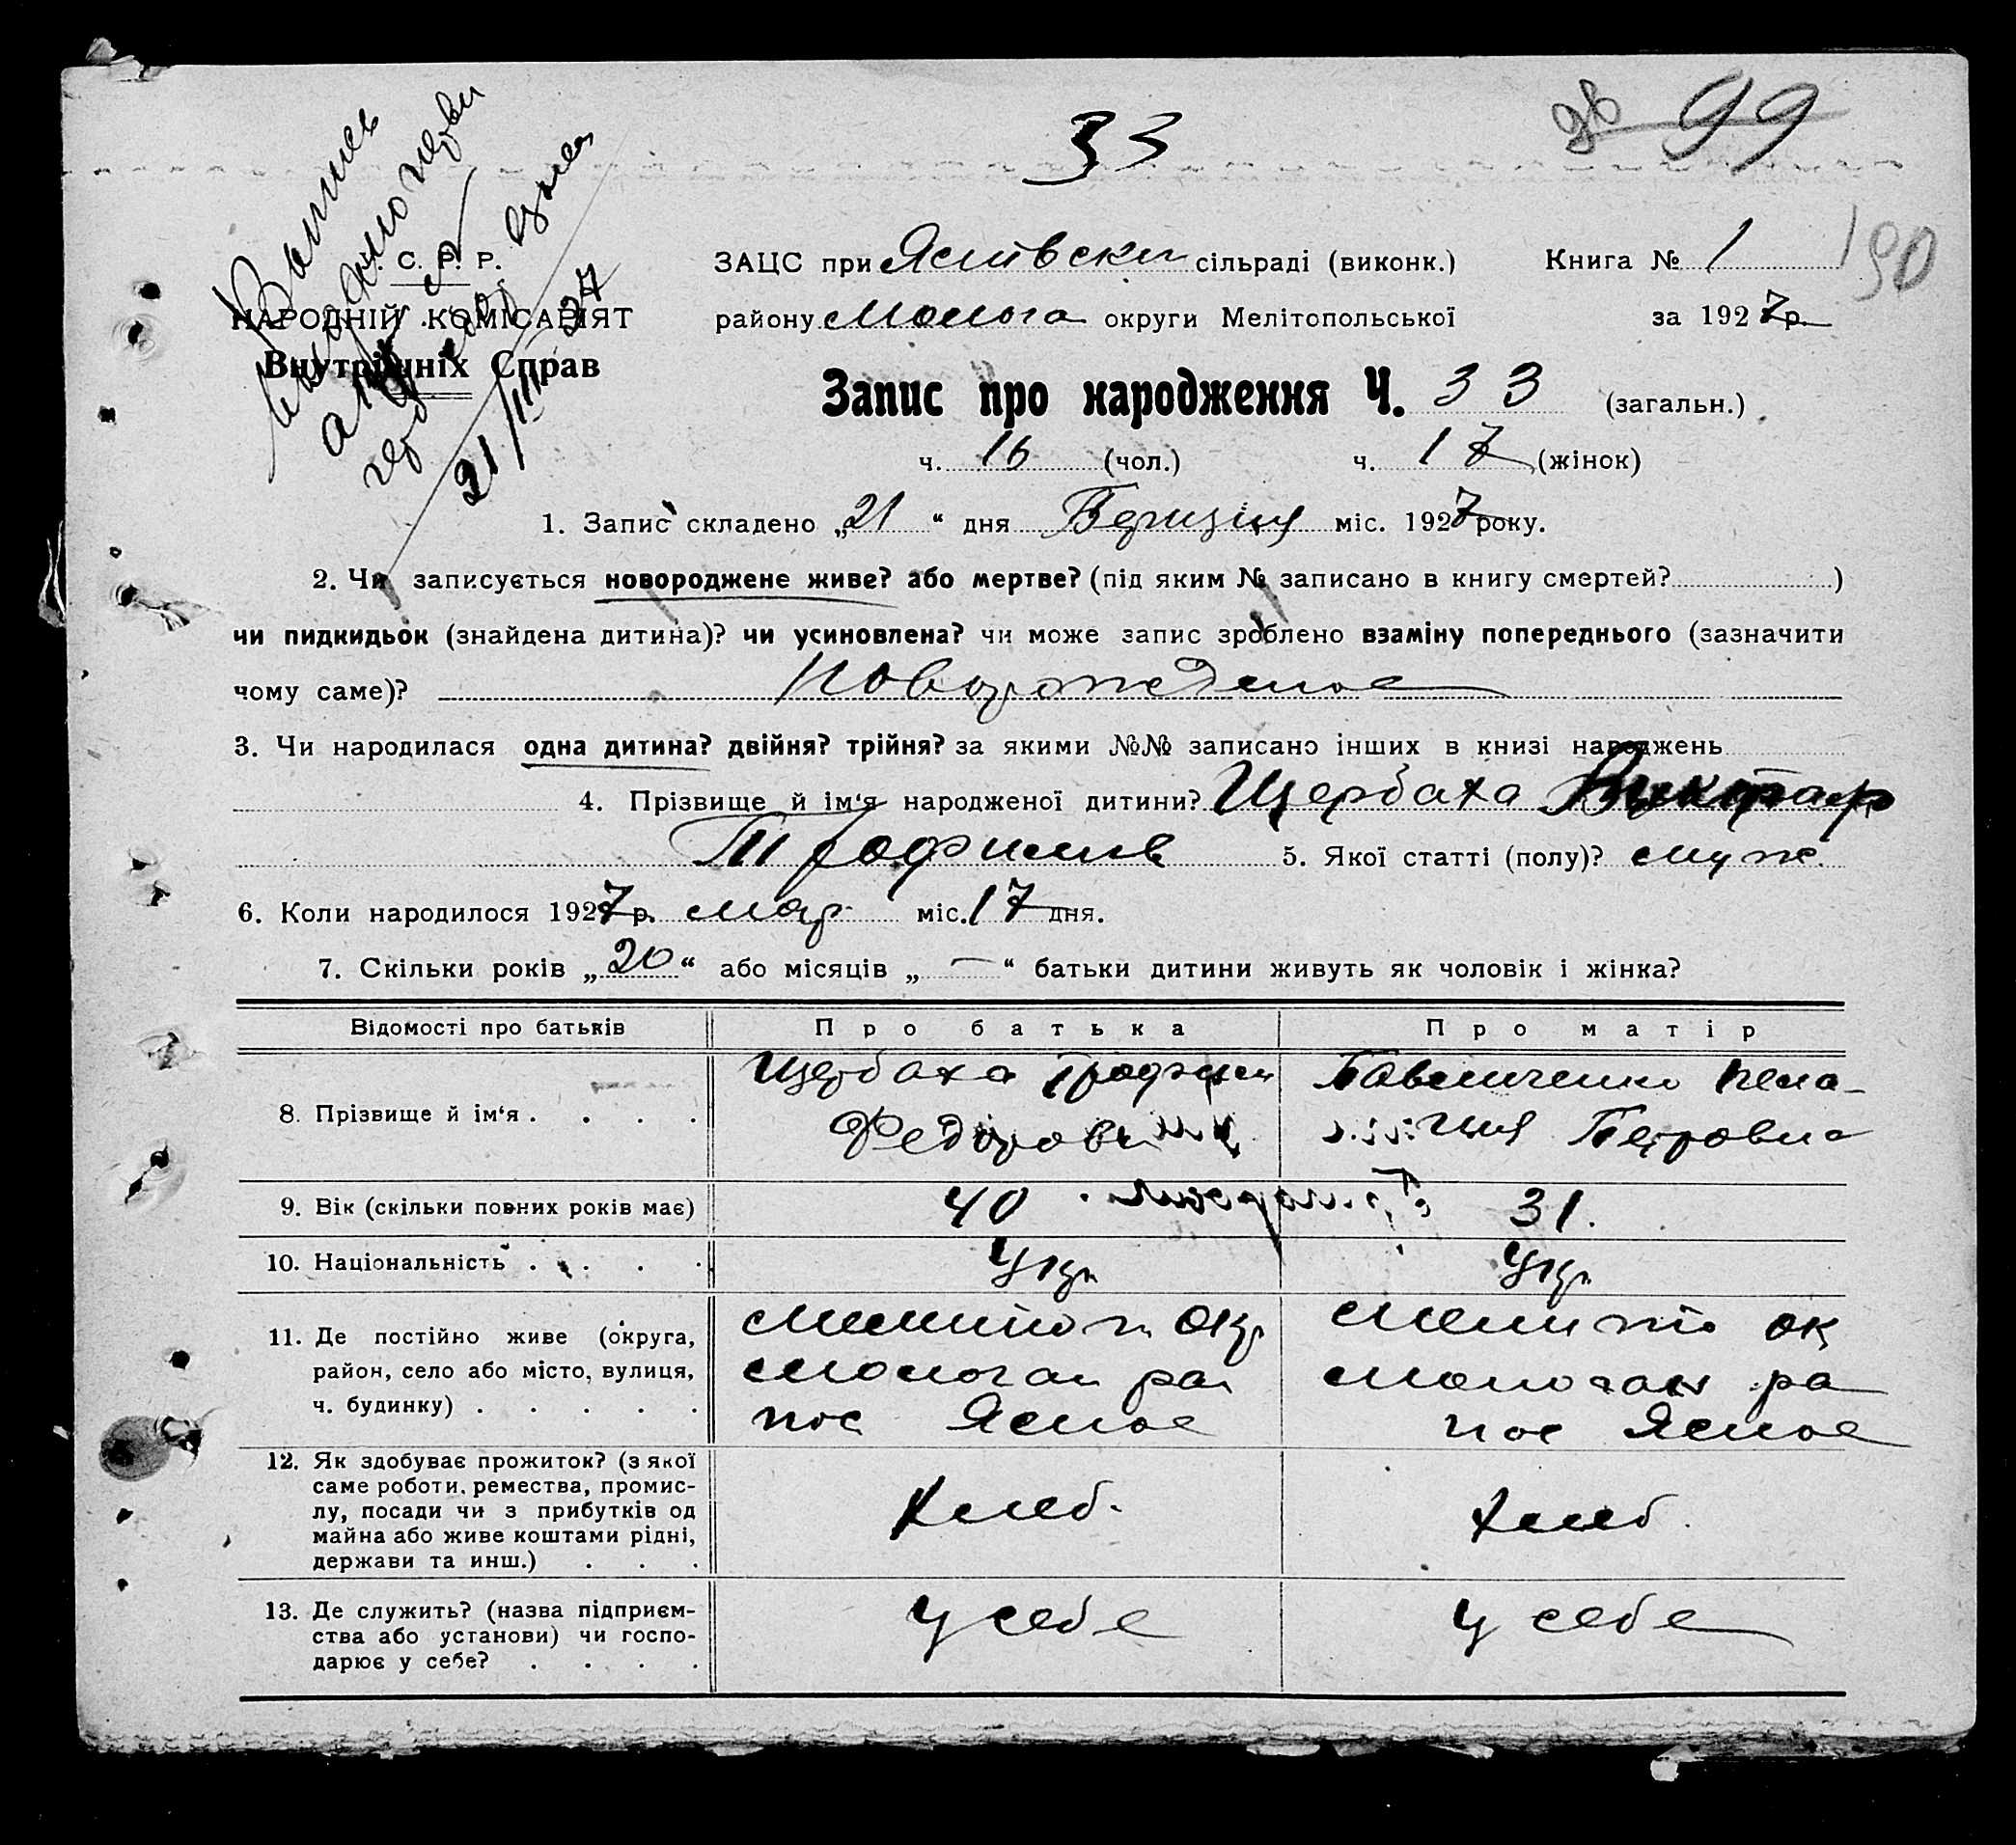 33
99
190
Выпись
С. Р. Р.
НАРОДНІЙ КОМІСАРІЯТ
Внутрішніх Справ
21/III 27
ЗАЦС при сільраді (виконк.) Книга № 1
району Молога округи Мелітопольської за 1927 р.
Запис про народження Ч. 33 (загальн.)
ч. 16 (чол.) ч. 17 (жінок)
1. Запис складено „21“ дня міс. 1927 року.
2. Чи записується новороджене живе? або мертве? (під яким № записано в книгу смертей? )
чи пидкидьок (знайдена дитина)? чи усиновлена? чи може запис зроблено взаміну попереднього (зазначити
чому саме)? Новорожденое
3. Чи народилася одна дитина? двійня? трійня? за якими №№ записано інших в книзі народжень
4. Прізвище й ім'я народженої дитини? Щербаха Виктар
Трофимов 5. Якої статті (полу)? муж
6. Коли народилося 1927 р. мар міс. 17 дня.
7. Скільки років „20“ або місяців „—“ батьки дитини живуть як чоловік і жінка?
Відомості про батьків Про батька Про матір
8. Прізвище й ім'я . . . .
Щербаха Трофим
Федорович
Пела-
гия Петровна
9. Вік (скільки повних років має) 40 31.
10. Національність . . . . Укр Укр
11. Де постійно живе (округа,
район, село або місто, вулиця,
ч. будинку) . . . . .
Мелитоп Окр
Молочан ра
пос Ясное
Мелито ок
Молочан ра
пос Ясное
12. Як здобуває прожиток? (з якої
саме роботи, ремества, промис-
лу, посади чи з прибутків од
майна або живе коштами рідні,
держави та инш.) . . .
Хлеб.
Хлеб.
13. Де служить? (назва підприєм-
ства або установи) чи госпо-
дарює у себе? . . . .
У себе
У себе